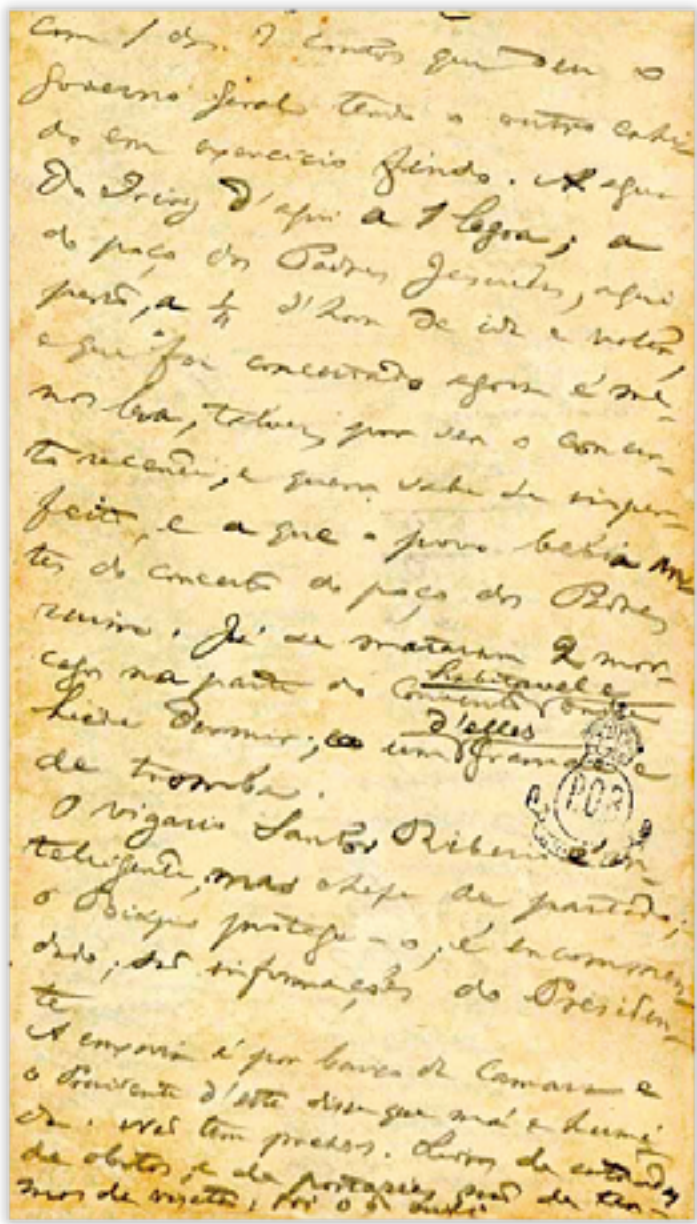 com 1 dos 2 contos que deu o
Governo Geral tendo o outro cahi-
do em exercicio findo. A agua
do d'aqui a 1 legoa; a
do poço dos Padres Jesuitas, aqui
perto, a 1/4 d'hora de ida e volta,
e que foi concertado agora é me-
nos boa, talvez por ser o concer-
to recente, e quem sabe se imper-
feito, e a que o povo bebia an-
tes do concerto do poço dos Padres
ruim. Já se mataram 2 mor-
cegos na parte do Convento habitavel e onde
hei de dormir; um d'elles grande e
de tromba.
O vigario Santos Ribeiro é in-
teligente, mas chefe de partido;
o Bispo protege-o; é encommen-
dado; são informações do Presiden-
te
A enxovia é por baixo da Camara e
o Presidente d'esta disse que má e humi-
da. Não tem presos. Livros de entradas
de obitos, e de portarias, de ter-
mos de visita;
POB